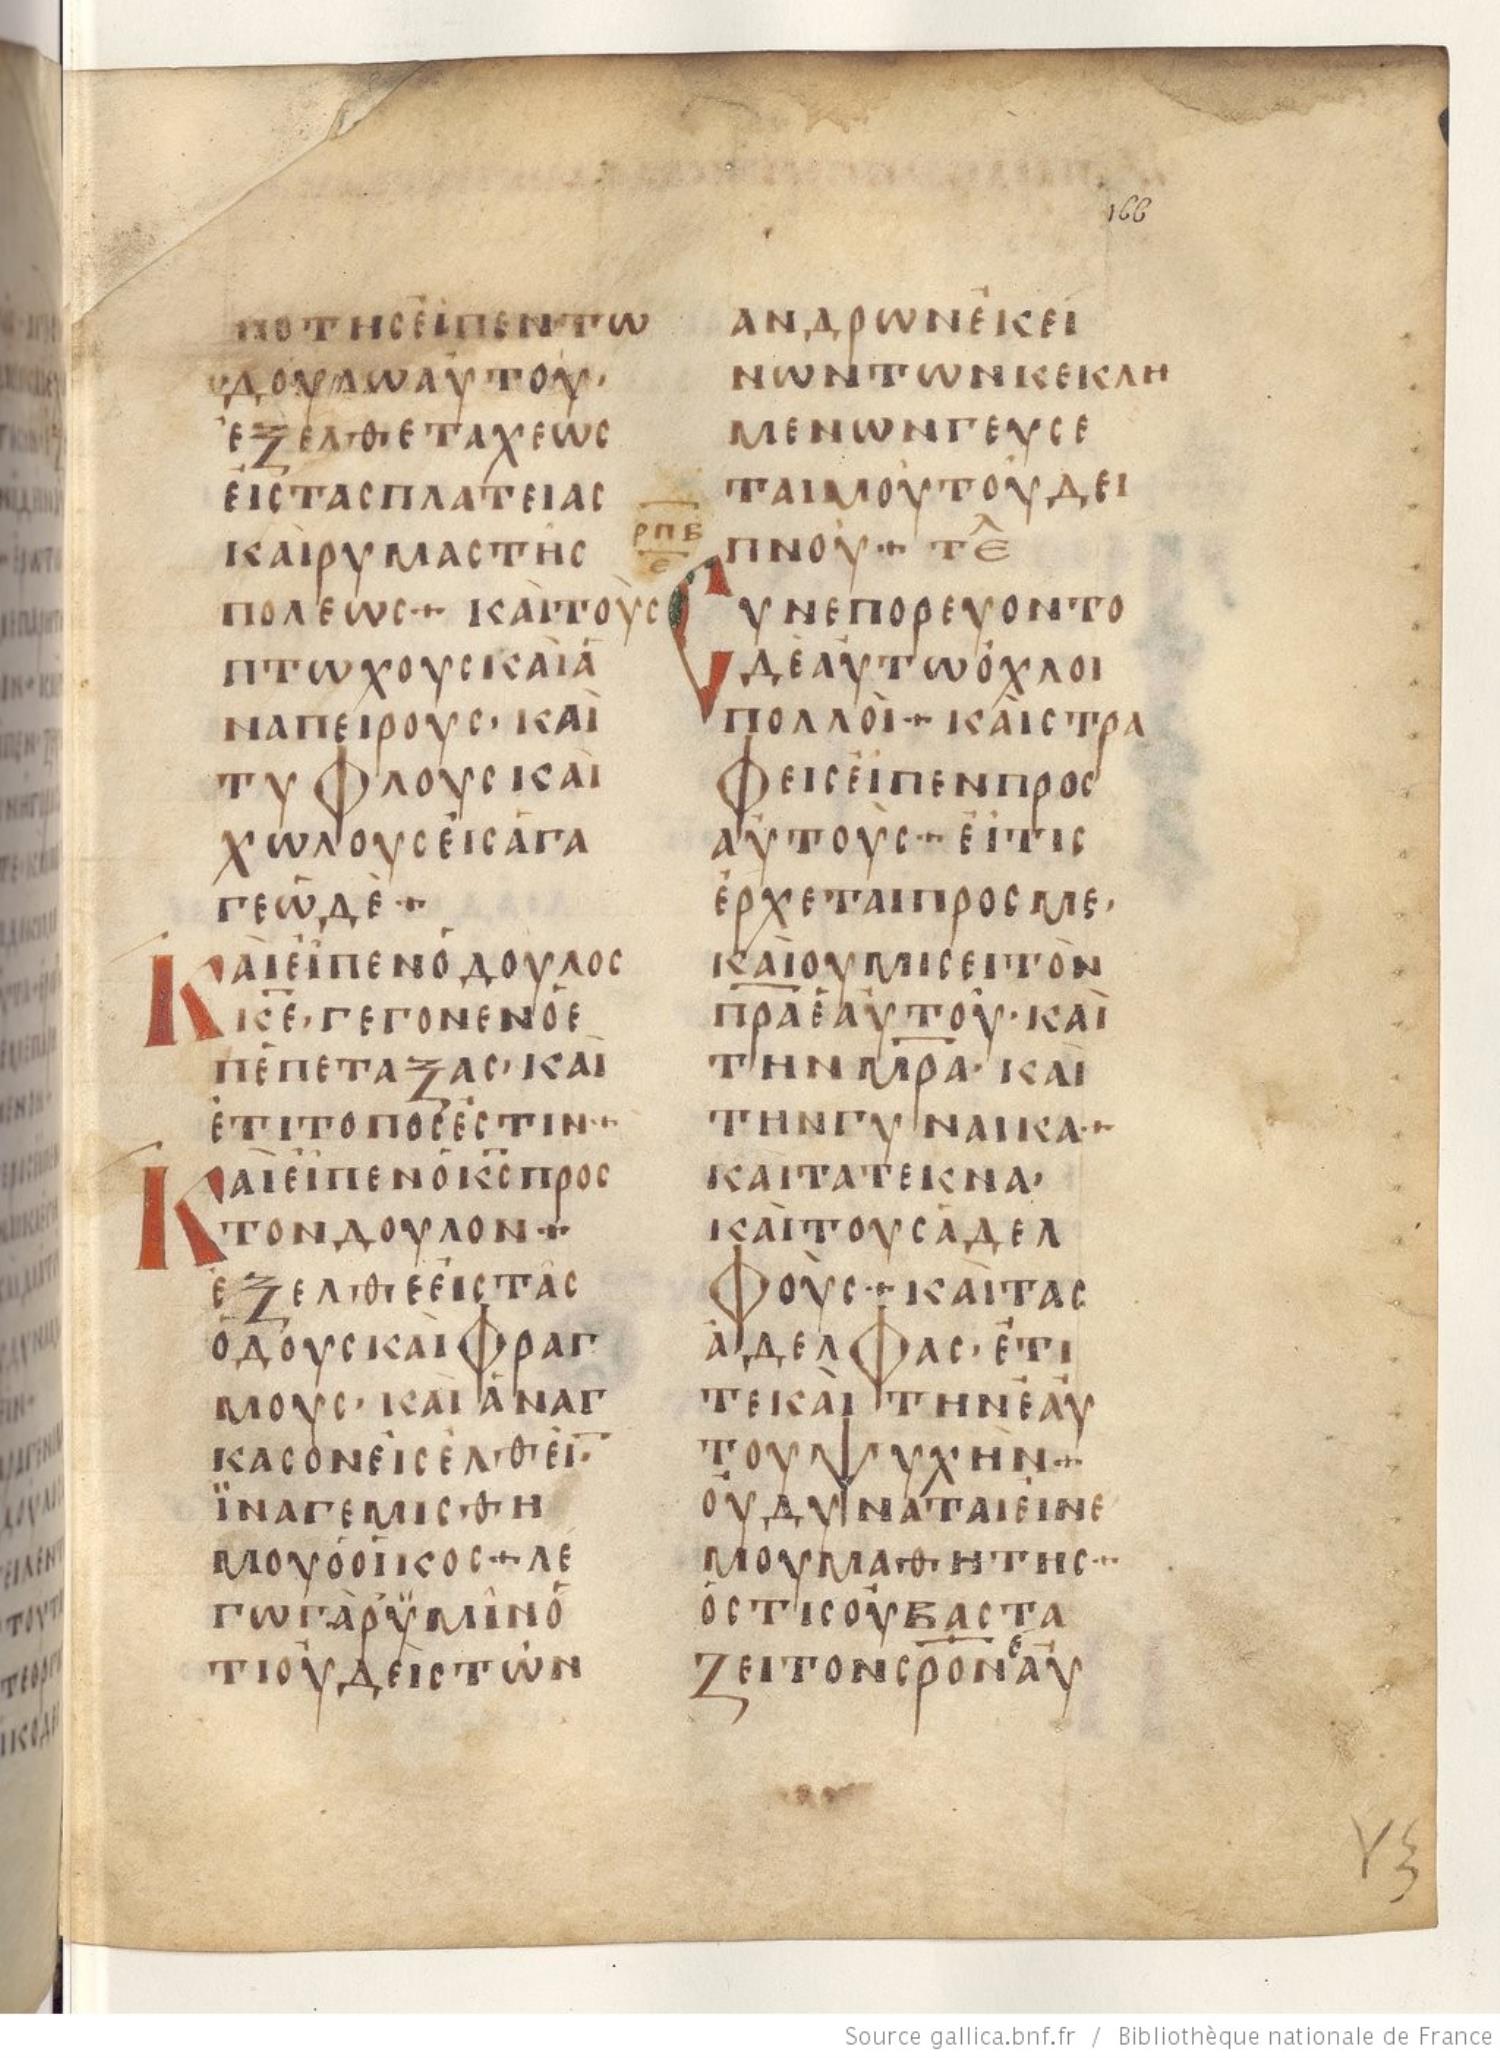 166
ποτης ειπεν τω
δουλω αυτου·
εξελθε ταχεως
εις τας πλατειας
και ρυμας της
πολεως + και τους
πτωχους και α
ναπειρους· και
τυφλους και
χωλους εισαγα
γε ωδε +
Και ειπεν ο δουλος
κ̅ε̅· γεγονεν ο ε
πεπεταξας· και
ετι τοπος εστιν +
Και ειπεν ο κ̅ς̅ προς
τον δουλον +
εξελθε εις τας
οδους και φραγ
μους· και αναγ
κασον εισελθει̅·
ϊνα γεμισθη
μου ο οικος + λε
γω γαρ ϋμιν ο
τι ουδεις των
ανδρων εκει
νων των κεκλη
μενων γευσε
ται μου του δει
πνου + τε^λ
ρπβ
ε
Συνεπορευοντο
δε αυτω οχλοι
πολλοι + και στρα
φεις ειπεν προς
αυτους + ει τις
ερχεται προς με·
και ου μισει τον
π̅ρ̅α̅ εαυτου· και
την μ̅ρ̅α̅· και
την γυναικα +
και τα τεκνα·
και τους αδελ
φους + και τας
αδελφας· ετι
τε και την εαυ
του ψυχην +
ου δυναται ειναι
μου μαθητης +
οστις ου βαστα
ζει τον σ̅ρ̅ο̅ν εαυ
Source gallica.bnf.fr / Bibliothèque nationale de France